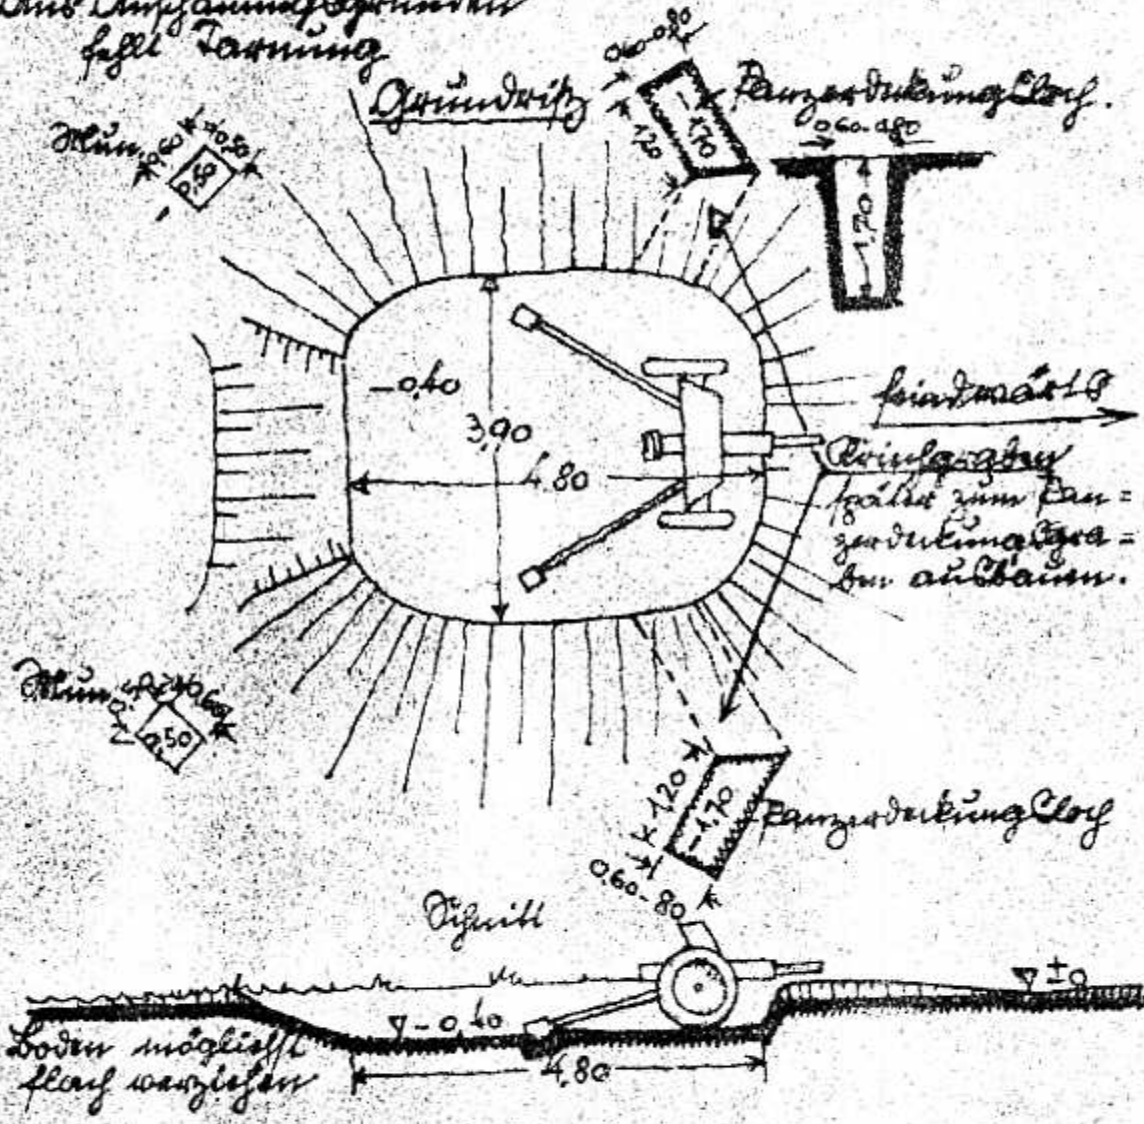 Aus Anschauungsgründen
fehlt Tarnung
Grundriß
Mun.
0,60
0,50
0,60-0,80
1,20
-1,70
Panzerdeckungsloch.
0,60-0,80
1,70
-0,40
3,90
4.80
feindwärts
Kriechgraben
später zum Pan=
zerdeckungsgra=
ben ausbauen.
Mun.
0,60
0,50
1,20
-1,70
Panzerdeckungsloch
0,60-80
Schnitt
±0
-0,40
Boden möglichst
flach verziehen
4,80